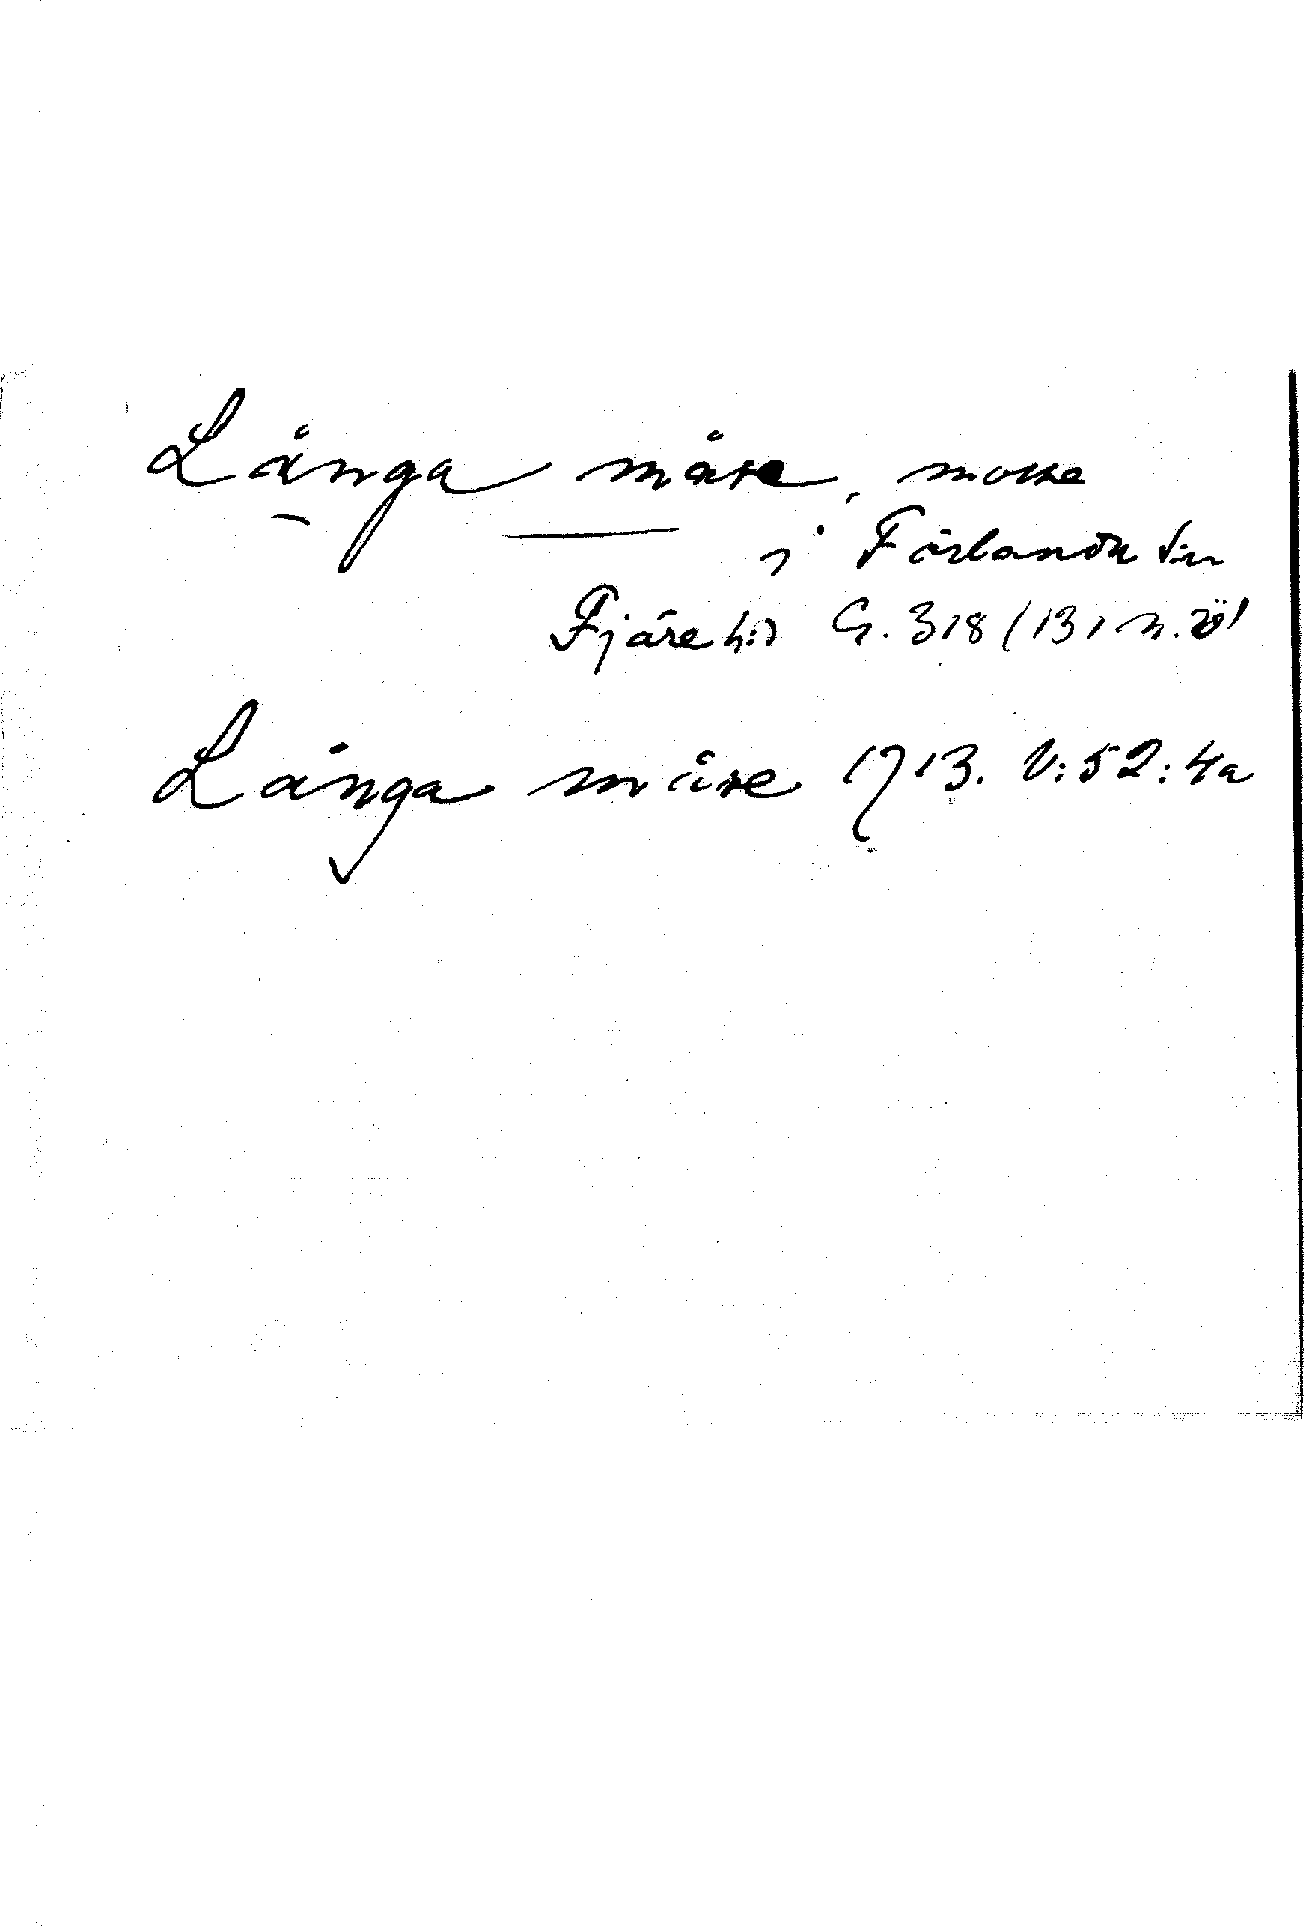 Långa måse, mosse
i Förlanda s:n
Fjäre h:d G. 318 (131 n.
Långa måse 1713. V:52:4a